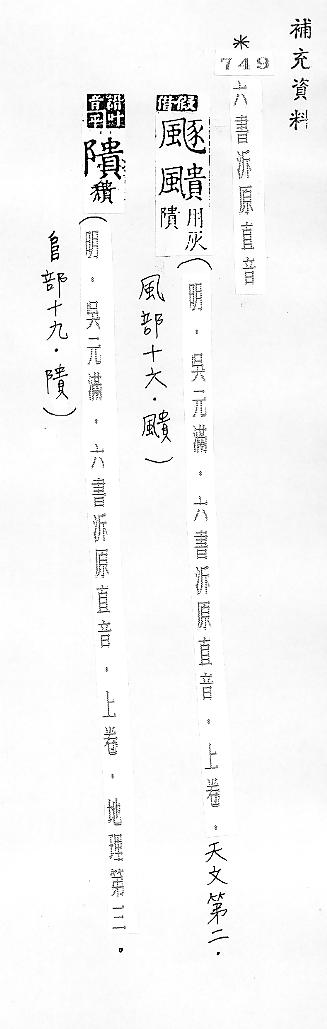 補充資料
*
749
六書泝原直音
假借
䫋
用灰
隤
(明．吳元滿．六書泝原直音．上卷．天文第二．
風部十六．䫋)
叶平
諧音
隤
(明．吳元滿．六書泝原直音．上卷．地理第三．
𨸏部十九．隤)